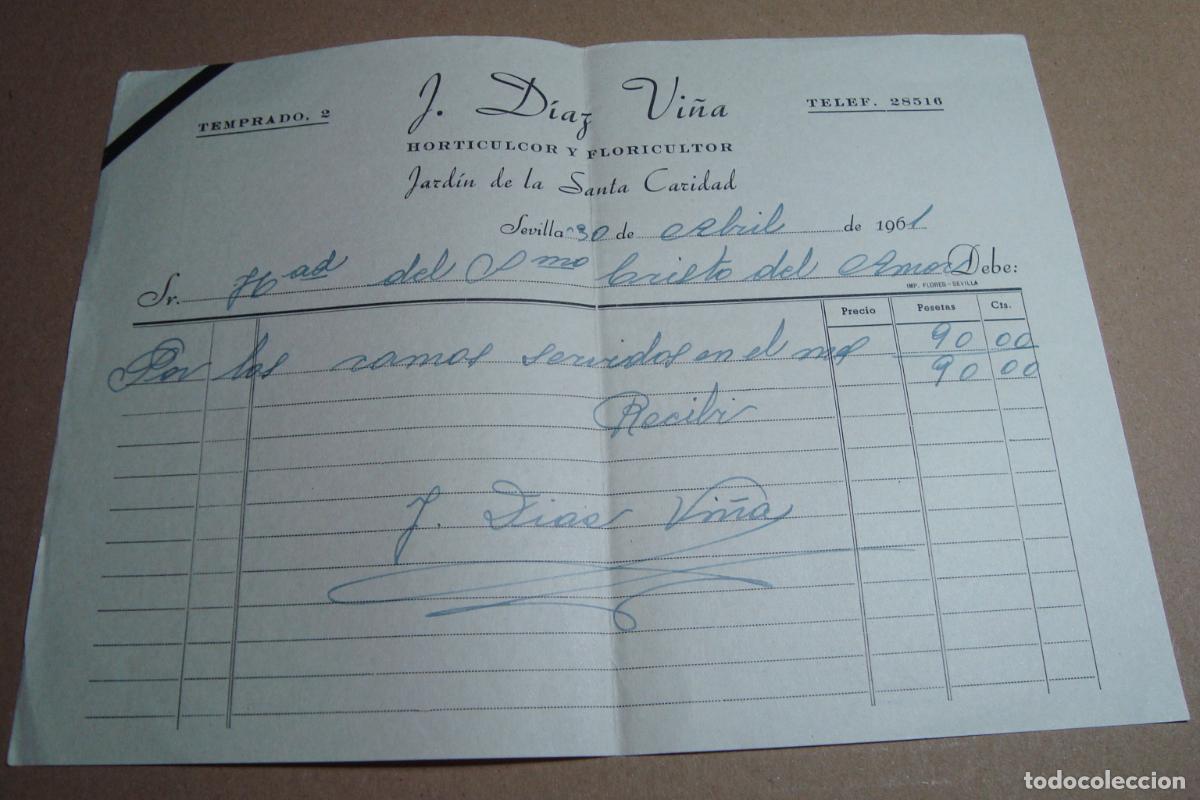 TEMPRADO, 2
J. Díaz Viña
TELEF. 28516
HORTICULCOR Y FLORICULTOR
Jardín de la Santa Caridad
Sevilla 30 de Abril de 1961
Sr. Had del Smo Cristo del Amor Debe:
IMP. FLORES - SEVILLA
Precio Pesetas Cts.
Por los ramos servidos en el mes 90 00
90 00
Recibi
J. Dias Viña
todocoleccion